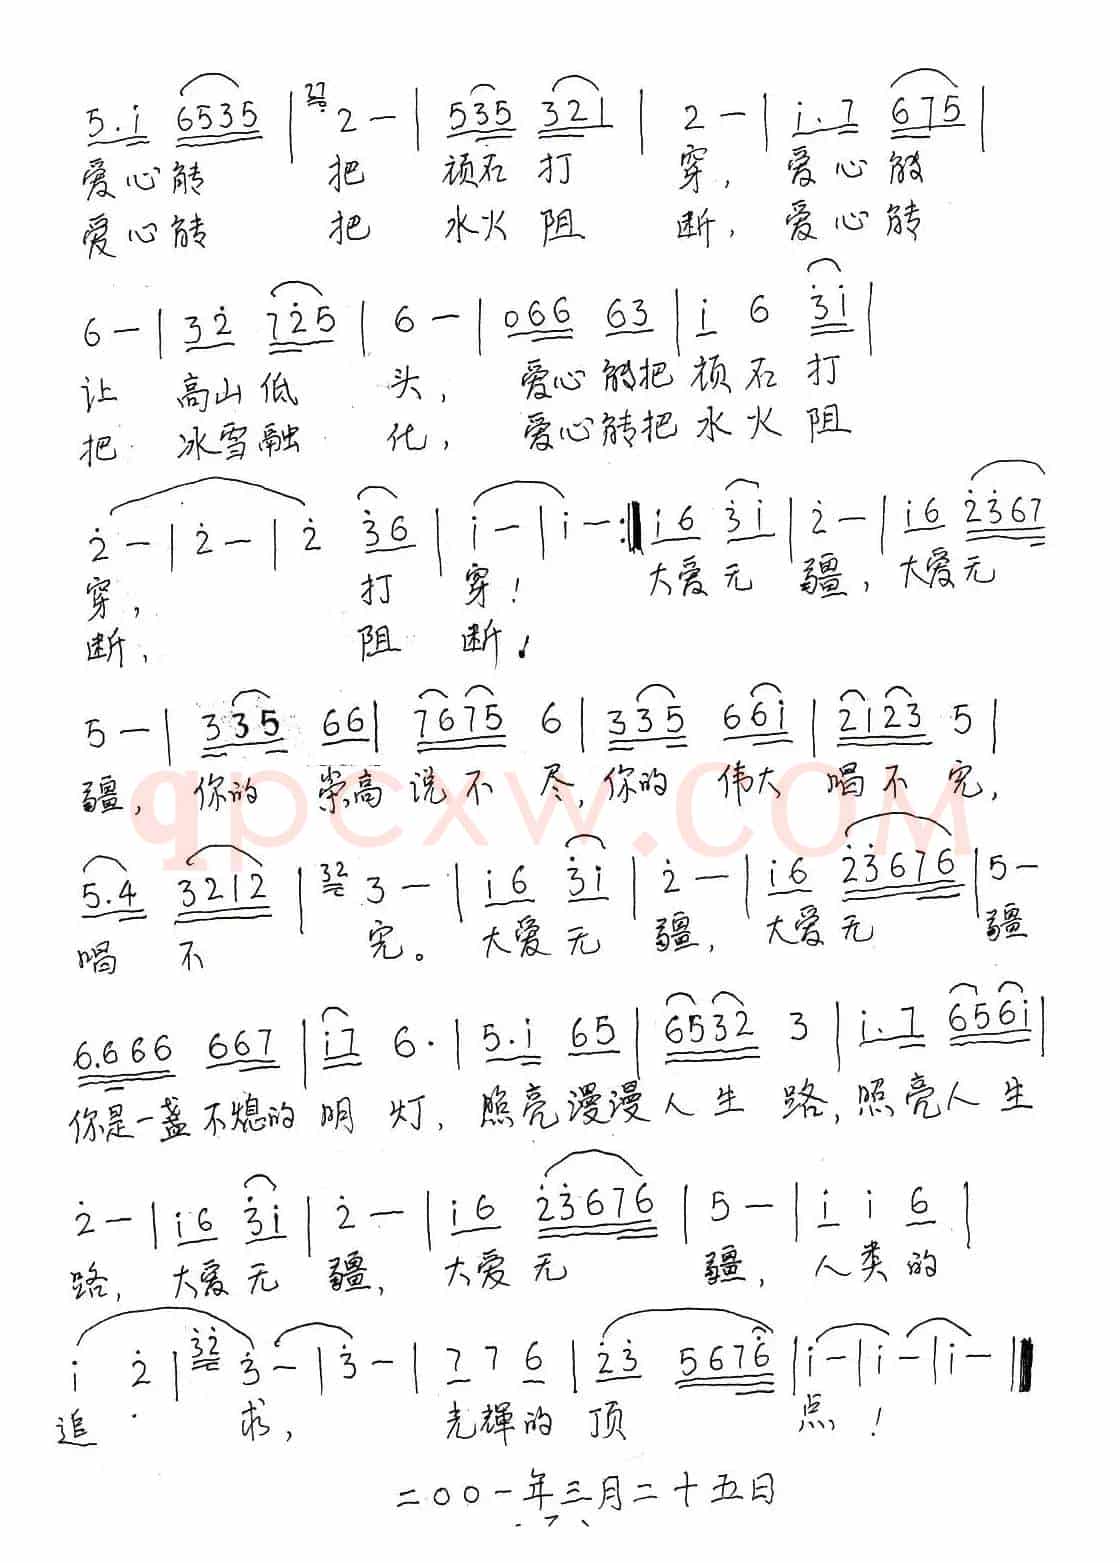 5.i 6535 | 37 2 — | 535 321 | 2 — | i.7 675 |
爱心能 把 顽石打 穿, 爱心能
爱心能 把 水火阻 断, 爱心能
6 — | 32̇ 72̇5 | 6 — | 066 63 | i 6 3̇i |
让 高山低 头, 爱心能把顽石打
把 冰雪融 化, 爱心能把水火阻
2̇ — | 2̇ — | 2̇ 3̇6 | i — | i — :‖ i6 3̇i | 2̇ — | i6 2̇3̇67
穿, 打 穿! 大爱无 疆, 大爱无
断, 阻 断!
5 — | 335 66 | 7675 6 | 335 66i | 2123 5 |
疆, 你的 崇高说不尽, 你的 伟大 唱不完,
qpcxw.COM
5.4 3212 | 32 3 — | i6 3̇i | 2̇ — | i6 2̇3̇676 | 5 —
唱 不 完。 大爱无 疆, 大爱无 疆
6.666 667 | i7 6. | 5.i 65 | 6532 3 | i.7 656i |
你是一盏不熄的明灯, 照亮漫漫人生路, 照亮人生
2̇ — | i6 3̇i | 2̇ — | i6 2̇3̇676 | 5 — | i i 6 |
路, 大爱无 疆, 大爱无 疆, 人类的
i 2̇ | 3̇2̇ 3̇ — | 3̇ — | 7 7 6 | 2̇3̇ 5676̇ | i — | i — | i — ‖
追 求, 光輝的顶 点!
二00一年三月二十五日